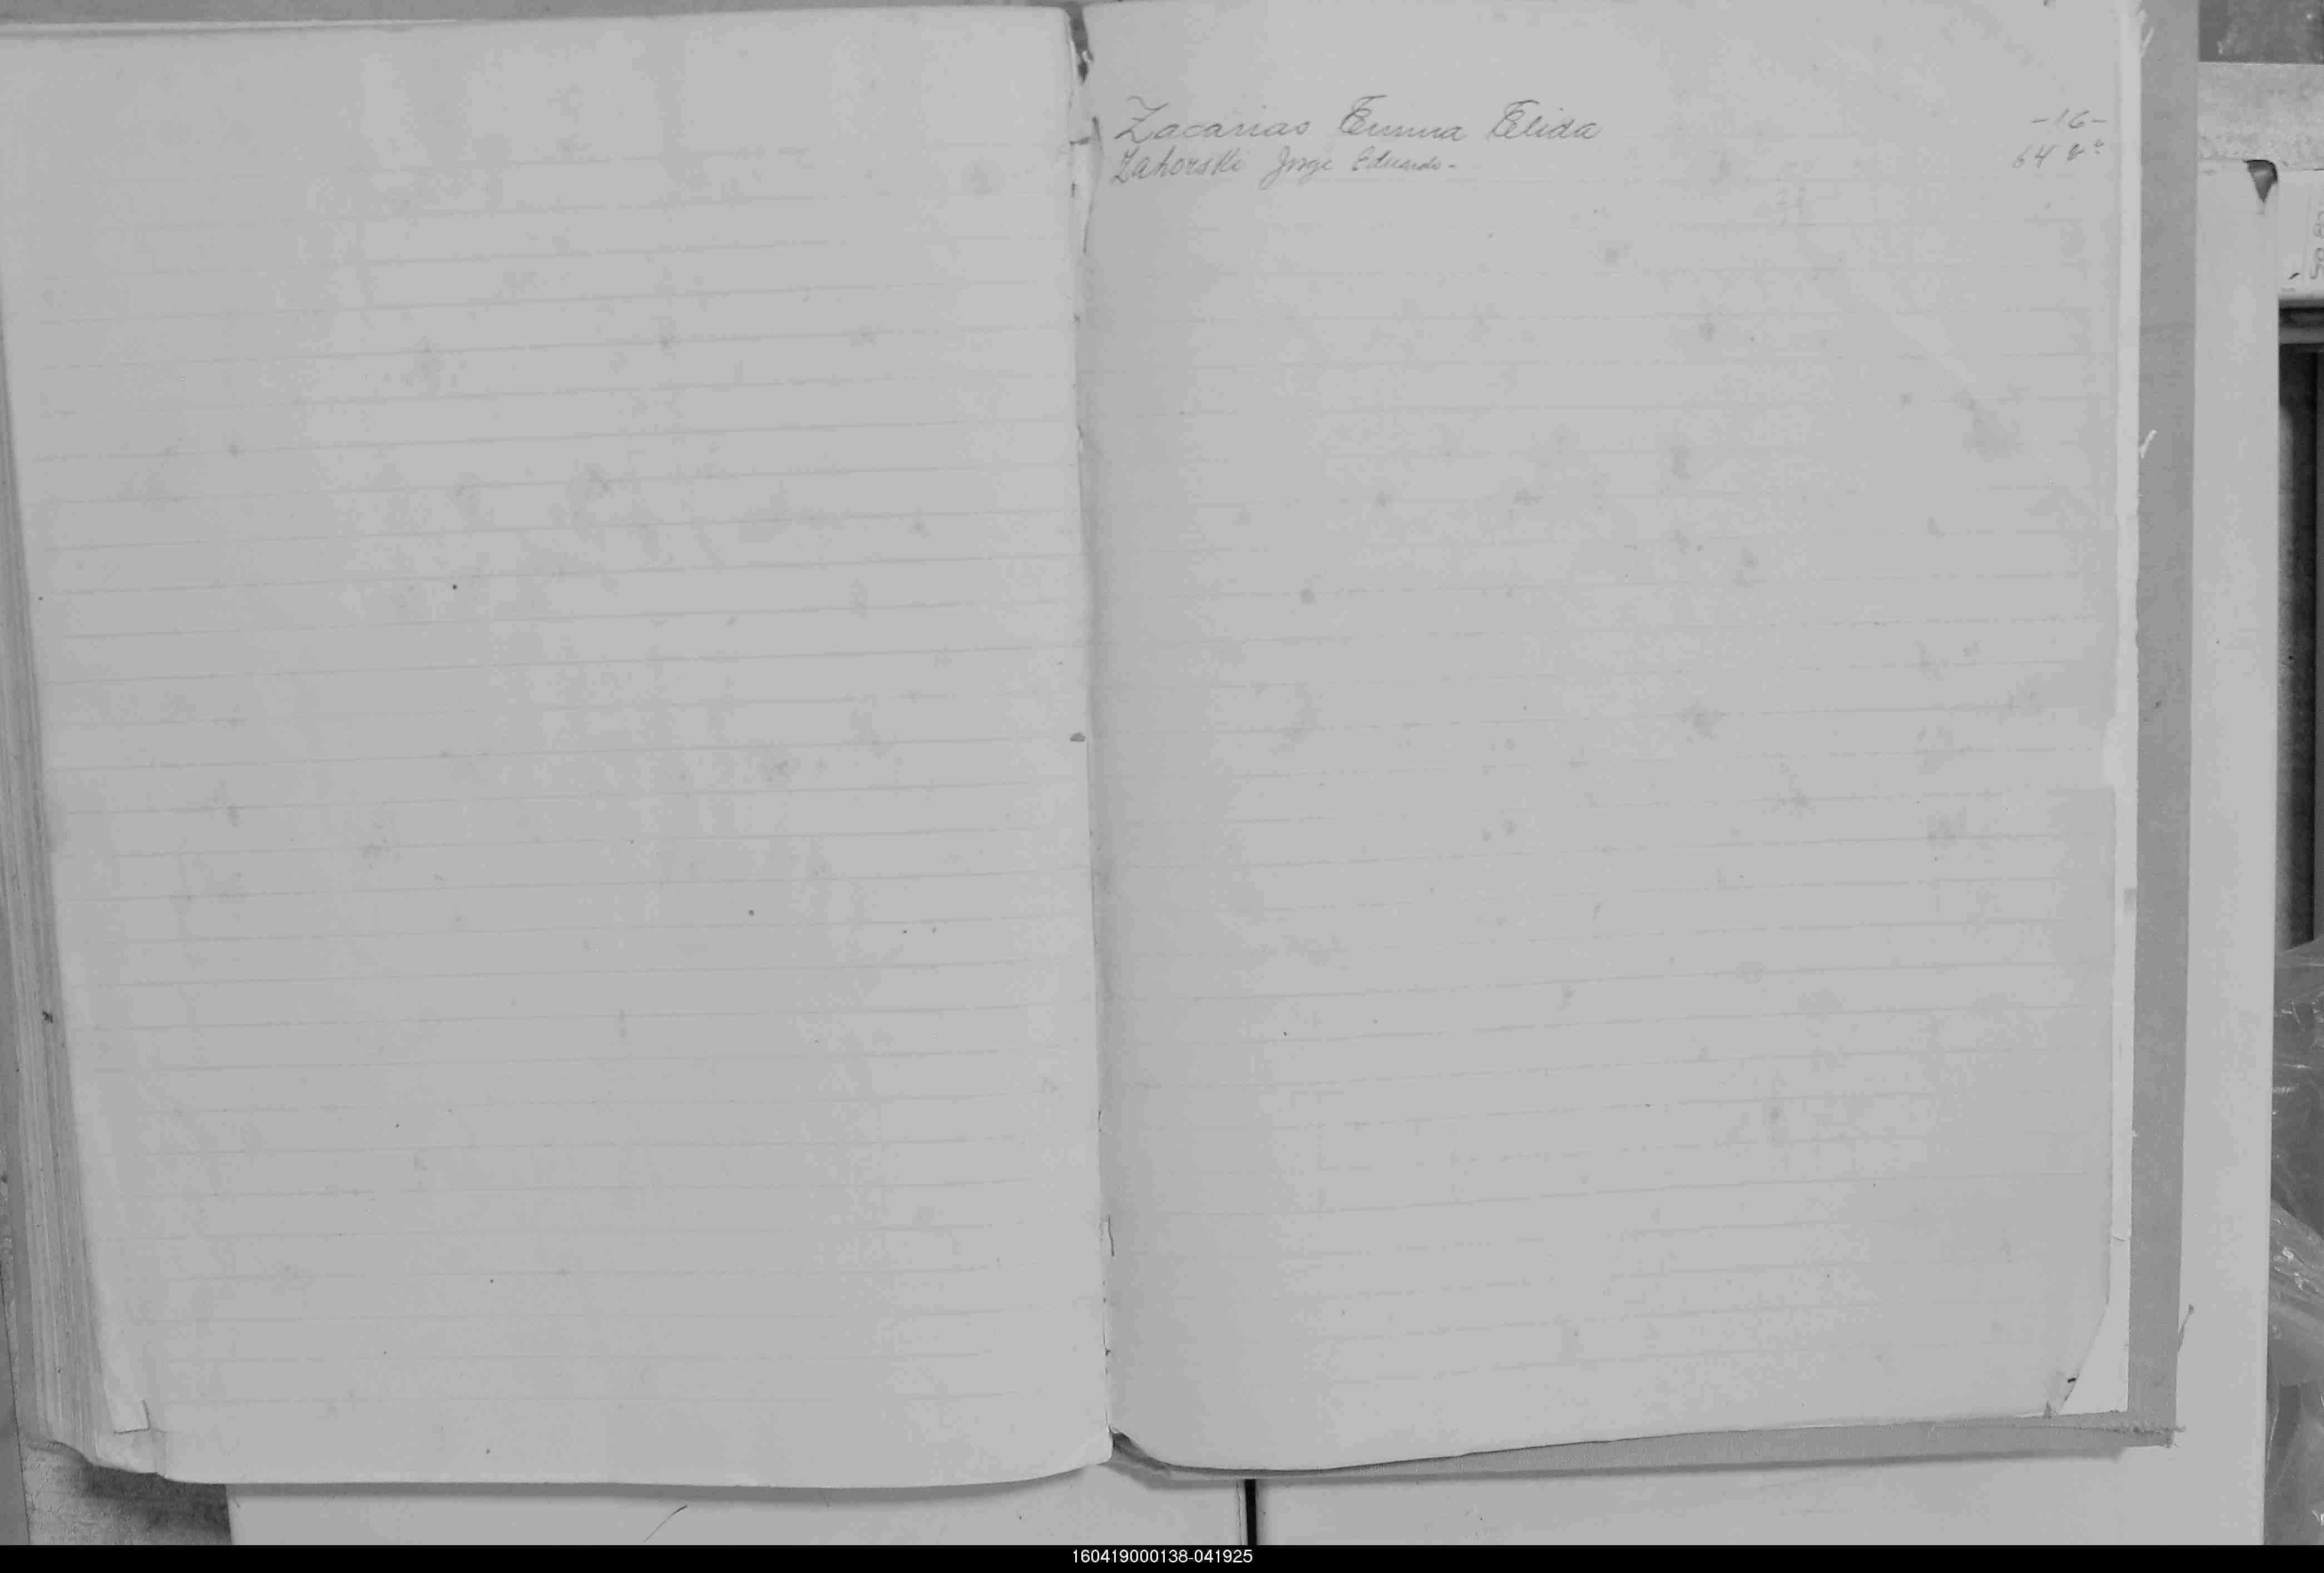 Zacarias Emma Elida -16-
Zahorski Jorge Eduardo- 64 vº
160419000138-041925